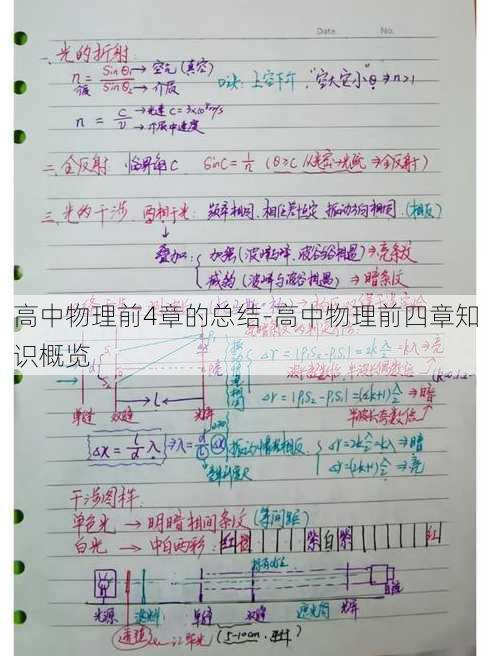 Date. No.
一、光的折射
n = Sinθ₁ → 空气(真空)
Sinθ₂ → 介质
口诀: 上空下介, "空大介小" θ ⇒ n>1
n = c/v → 光速 c = 3×10⁸m/s
→ 介质中速度
二、全反射 临界角C SinC = 1/n (θ≥C 从光密→光疏 ⇒全反射)
三、光的干涉 两相干光: 频率相同、相位差恒定、振动方向相同.(相反)
叠加: 加强(波峰与峰、波谷与谷相遇) ⇒ 亮条纹
减弱(波峰与波谷相遇) ⇒ 暗条纹
高中物理前4章的总结-高中物理前四章知
识概览
单缝 双缝 光屏
Δr = |P₁S₂ - P₁S₁| = (2k+1)λ/2 ⇒ 暗
半波长奇数倍
Δx = L/d λ
振动情况相反. Δr = 2k λ/2 ⇒ 暗
Δr = (2k+1) λ/2 ⇒ 亮
干涉图样:
单色光 → 明暗相间条纹(等间距)
白光 → 中白两彩: 红 橙 紫 白 紫 红
光源 滤光片 单缝 双缝 遮光筒 光屏 目镜
(5-10cm, 平行)